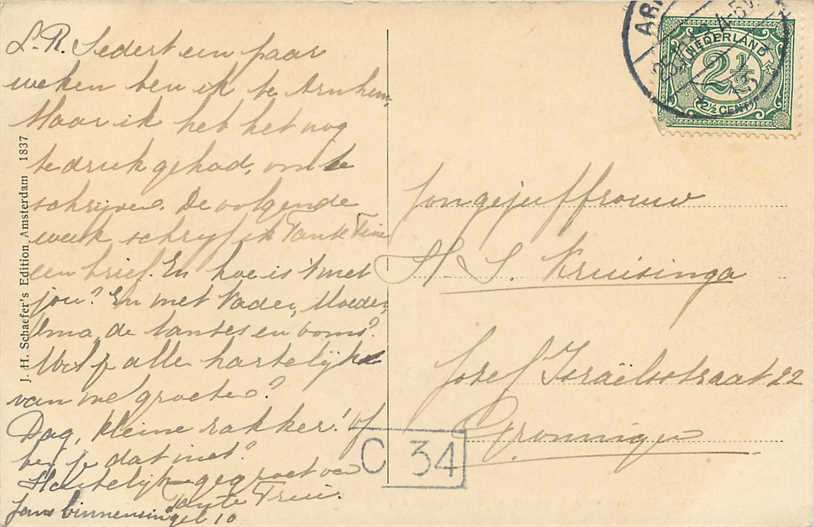 L. R. Sedert een paar
weken ben ik te Arnhem,
Maar ik heb het nog
te druk gehad, om te
schrijven. De volgende
week schrijf ik Tante Trui
een brief. En hoe is 't met
jou? En met Vader, Moeder,
Oma, de tantes en ooms?
Wil je alle hartelijk
van me groeten?
Dag, kleine rakker! of
ben je dat niet?
Hartelijk gegroet van
Tante Trui.
Jansbinnensingel 10
J. H. Schaefer's Edition Amsterdam 1837
NEDERLAND
2½
2½ CENT
Jongejuffrouw
H. S. Kruisinga
Jozef Israëlsstraat 22
Groningen
C 34